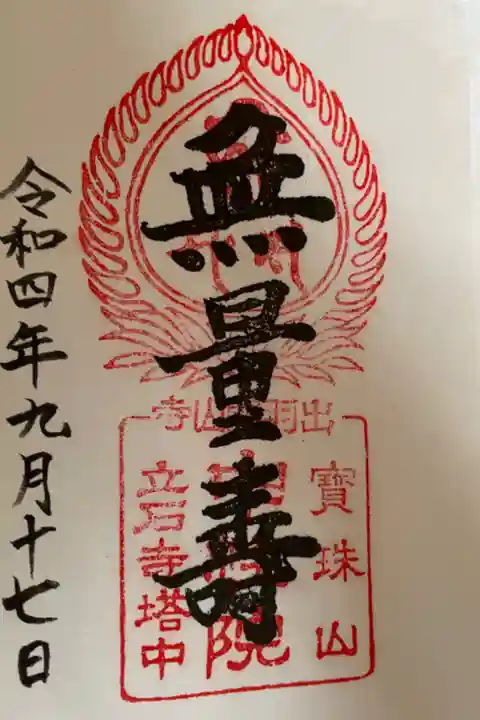 無量壽
令和四年九月十七日
出羽国山寺
寶珠山
院
立石寺塔中